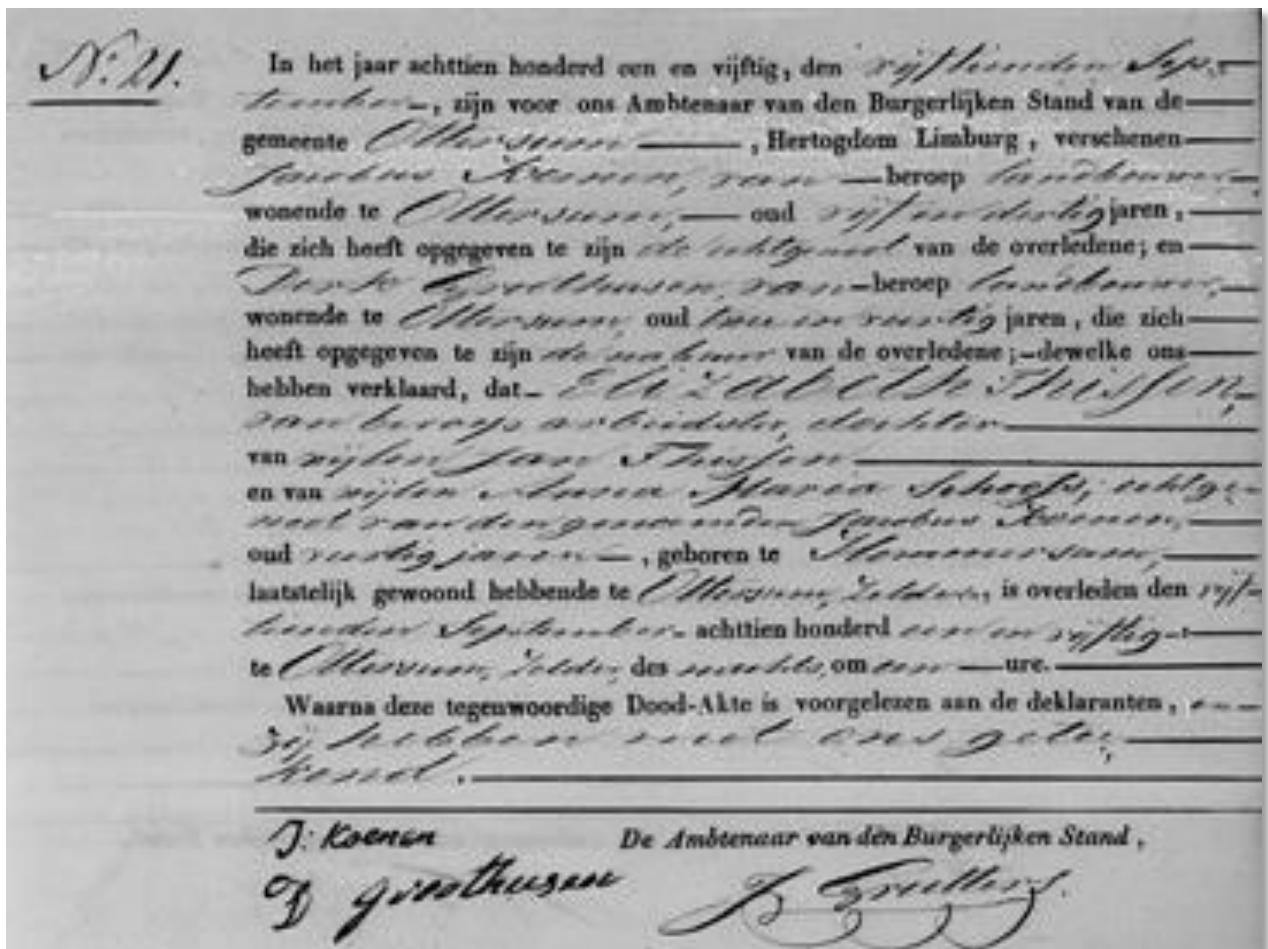 N.º 21.
In het jaar achttien honderd een en vijftig, den vijftienden Sep-
tember, zijn voor ons Ambtenaar van den Burgerlijken Stand van de
gemeente Ottersum, Hertogdom Limburg, verschenen
Jacobus Koenen, van beroep landbouwer,
wonende te Ottersum, oud vijf en dertig jaren,
die zich heeft opgegeven te zijn de echtgenoot van de overledene; en
Groothusen, van beroep landbouwer,
wonende te Ottersum, oud twee en veertig jaren, die zich
heeft opgegeven te zijn de nabuur van de overledene; dewelke ons
hebben verklaard, dat Elizabeth Thissen,
van beroep arbeidster, dochter
van wijlen Jan Thissen
en van wijlen Anna Maria, echtge-
noot van den genoemden Jacobus Koenen,
oud veertig jaren, geboren te Hommersum,
laatstelijk gewoond hebbende te Ottersum, Zelder, is overleden den vijf-
tienden September achttien honderd een en vijftig
te Ottersum, Zelder, des nachts, om een ure.
Waarna deze tegenwoordige Dood-Akte is voorgelezen aan de deklaranten, en
zij hebben met ons gete,
kend.
J: Koenen De Ambtenaar van den Burgerlijken Stand,
D groothusen